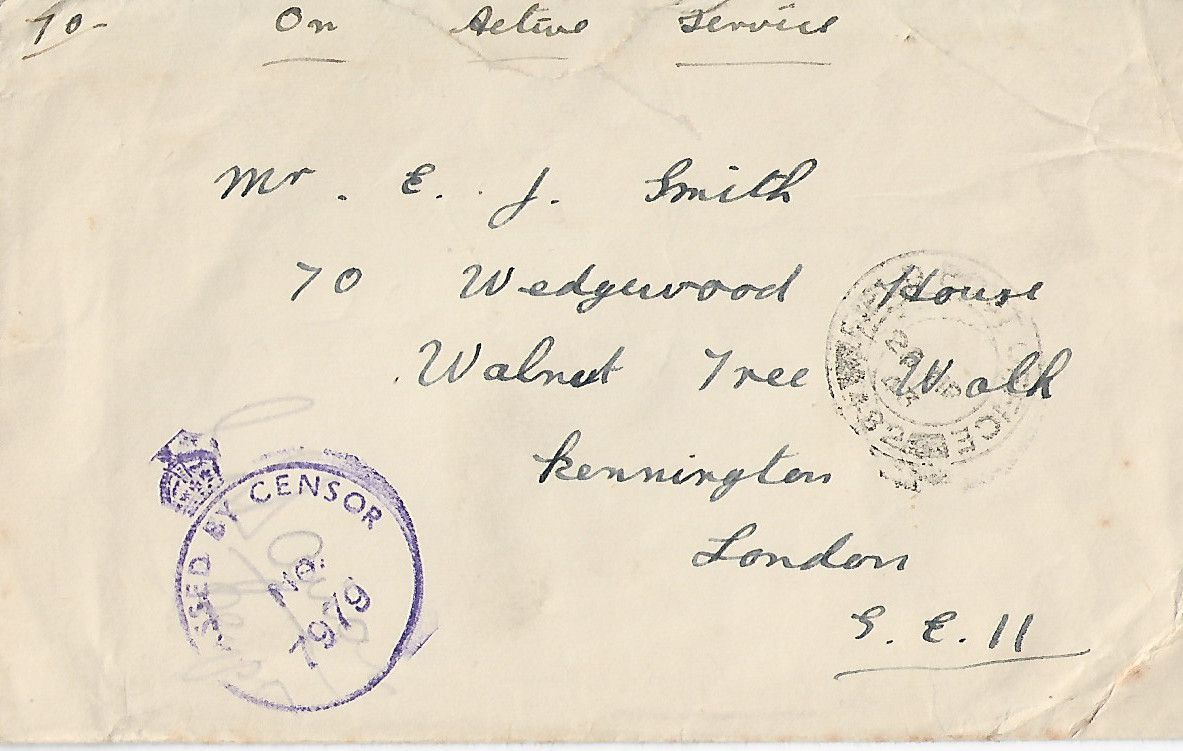 70- On Active Service
Mr. E. J. Smith
70 Wedgewood House
Walnut Tree Walk
Kennington
London
S.E.11
PASSED BY CENSOR
No.
7979